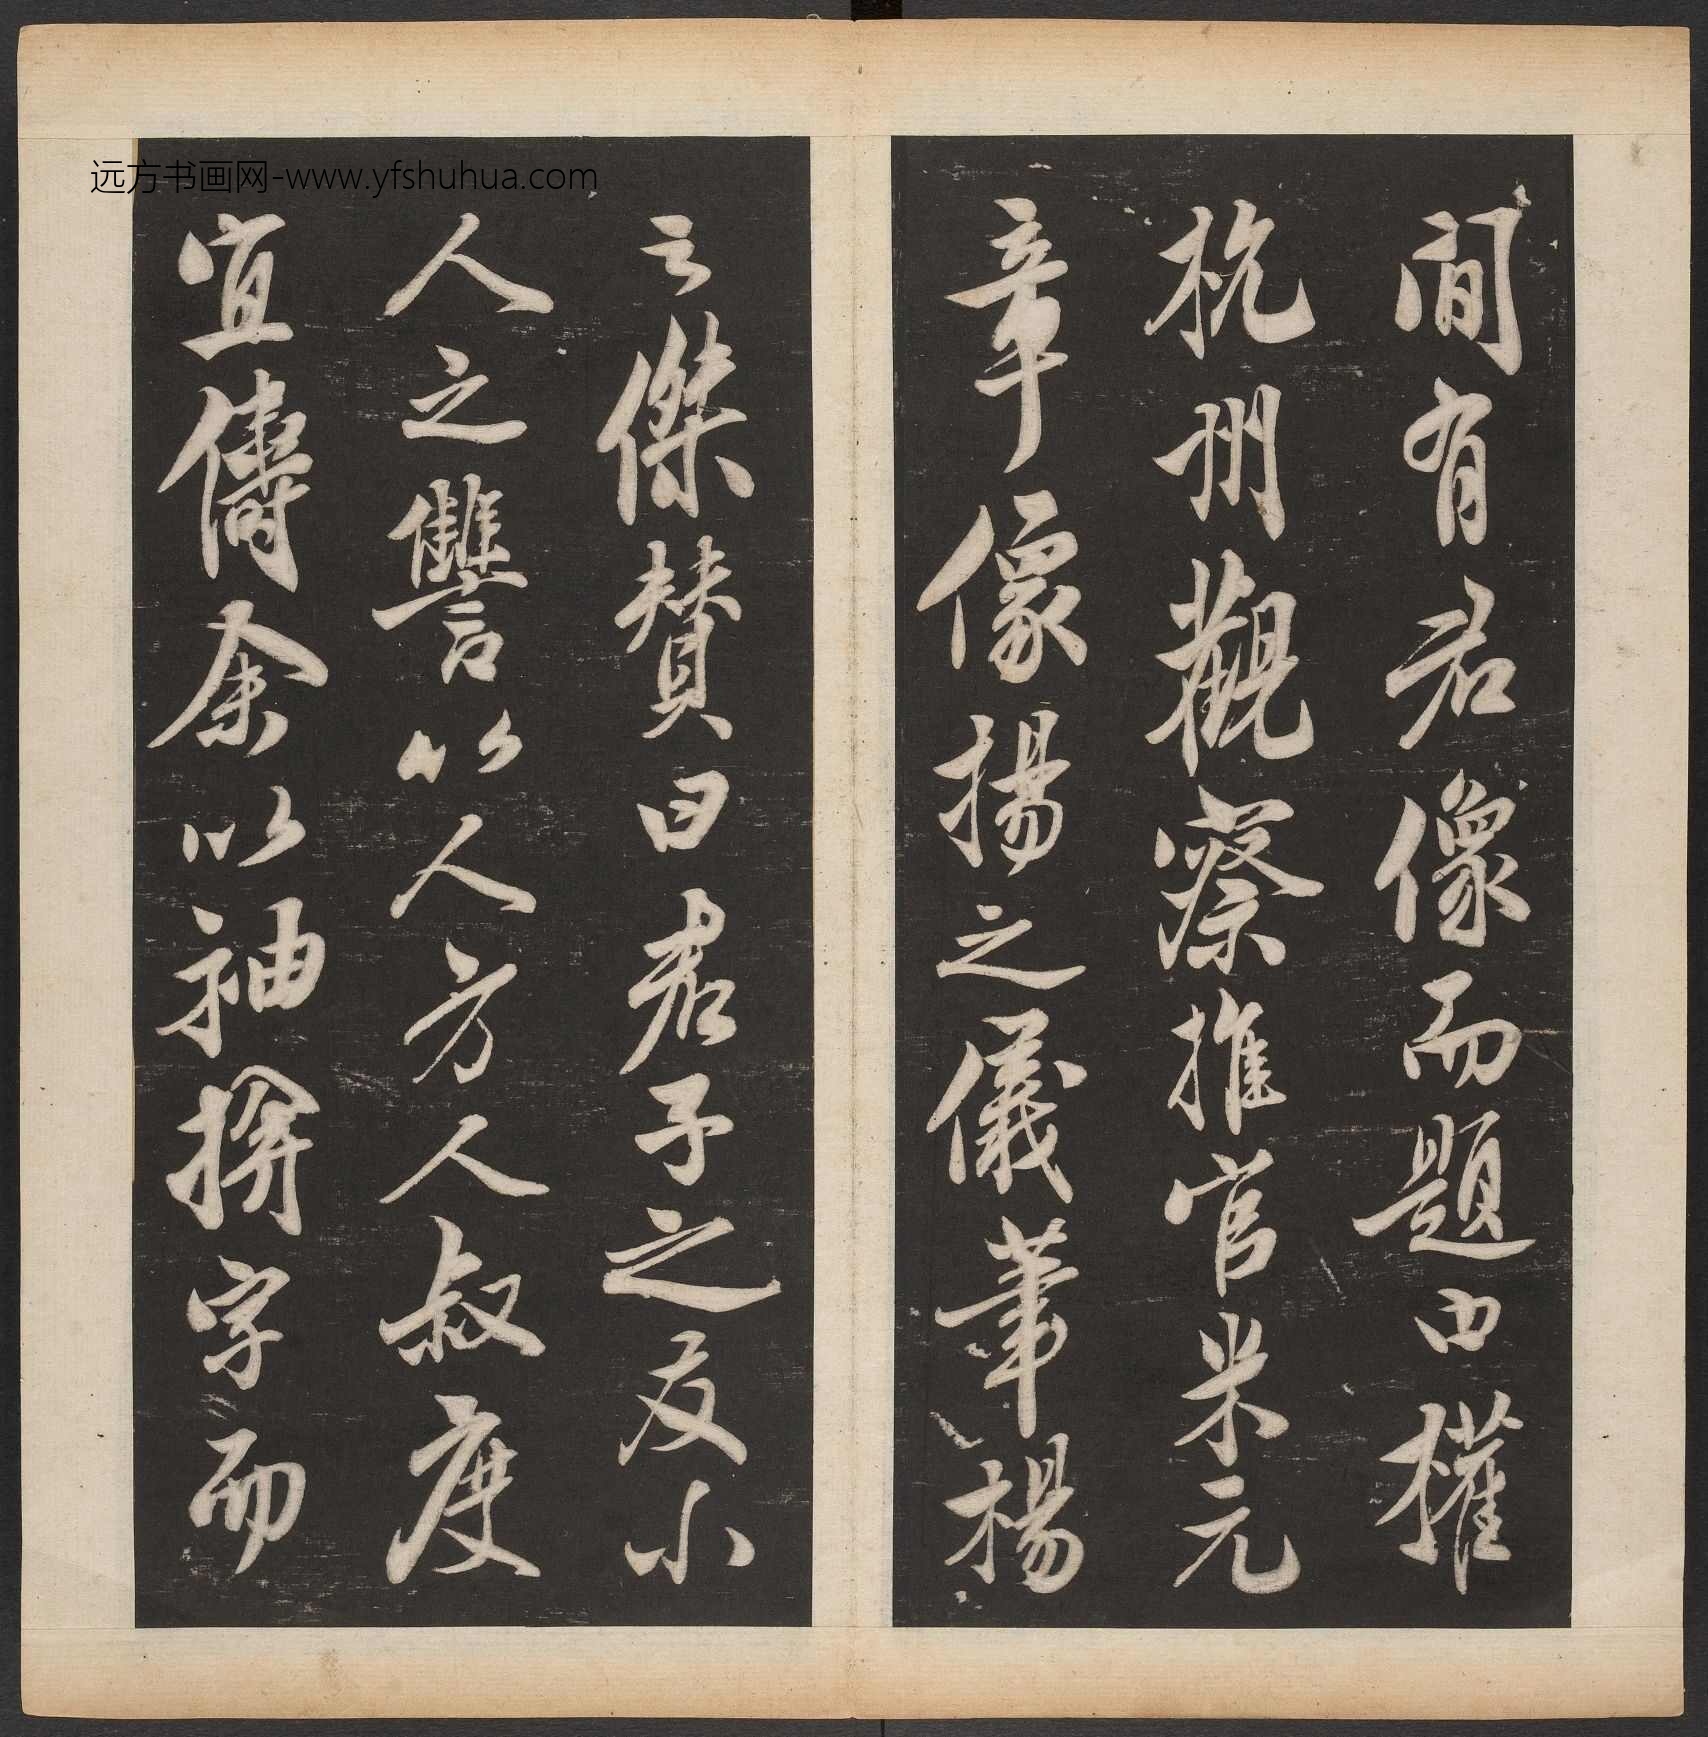 远方书画网-www.yfshuhua.com
閒有君像而題曰權
杭州觀察推官米元
章像揚之儀筆楊
云傑贊曰君子之友小
人之讐以人方人叔度
宜儔余以袖揜字而